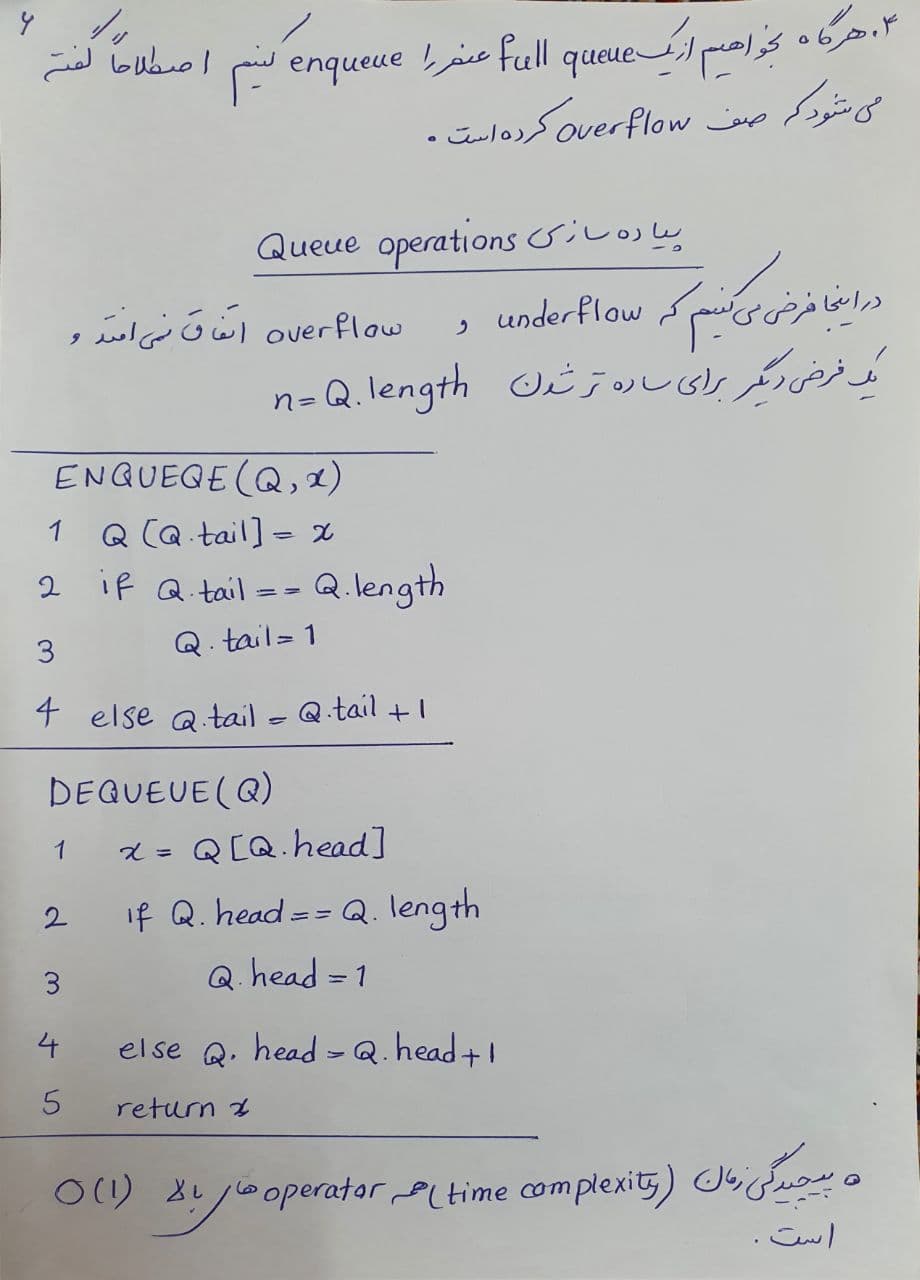 ۶
۴. هرگاه بخواهیم از یک full queue عنصر را enqueue کنیم اصطلاحاً گفته
می شود که صف overflow کرده است .
پیاده سازی Queue operations
در اینجا فرض می کنیم که underflow و overflow اتفاق نمی افتد و
یک فرض دیگر برای ساده تر شدن n=Q.length
ENQUEQE(Q,x)
1 Q[Q.tail]= x
2 if Q.tail == Q.length
3 Q.tail=1
4 else Q.tail = Q.tail +1
DEQUEUE(Q)
1 x = Q[Q.head]
2 if Q.head == Q.length
3 Q.head = 1
4 else Q.head = Q.head+1
5 return x
پیچیدگی زمان (time complexity) operator های بالا O(1)
است .